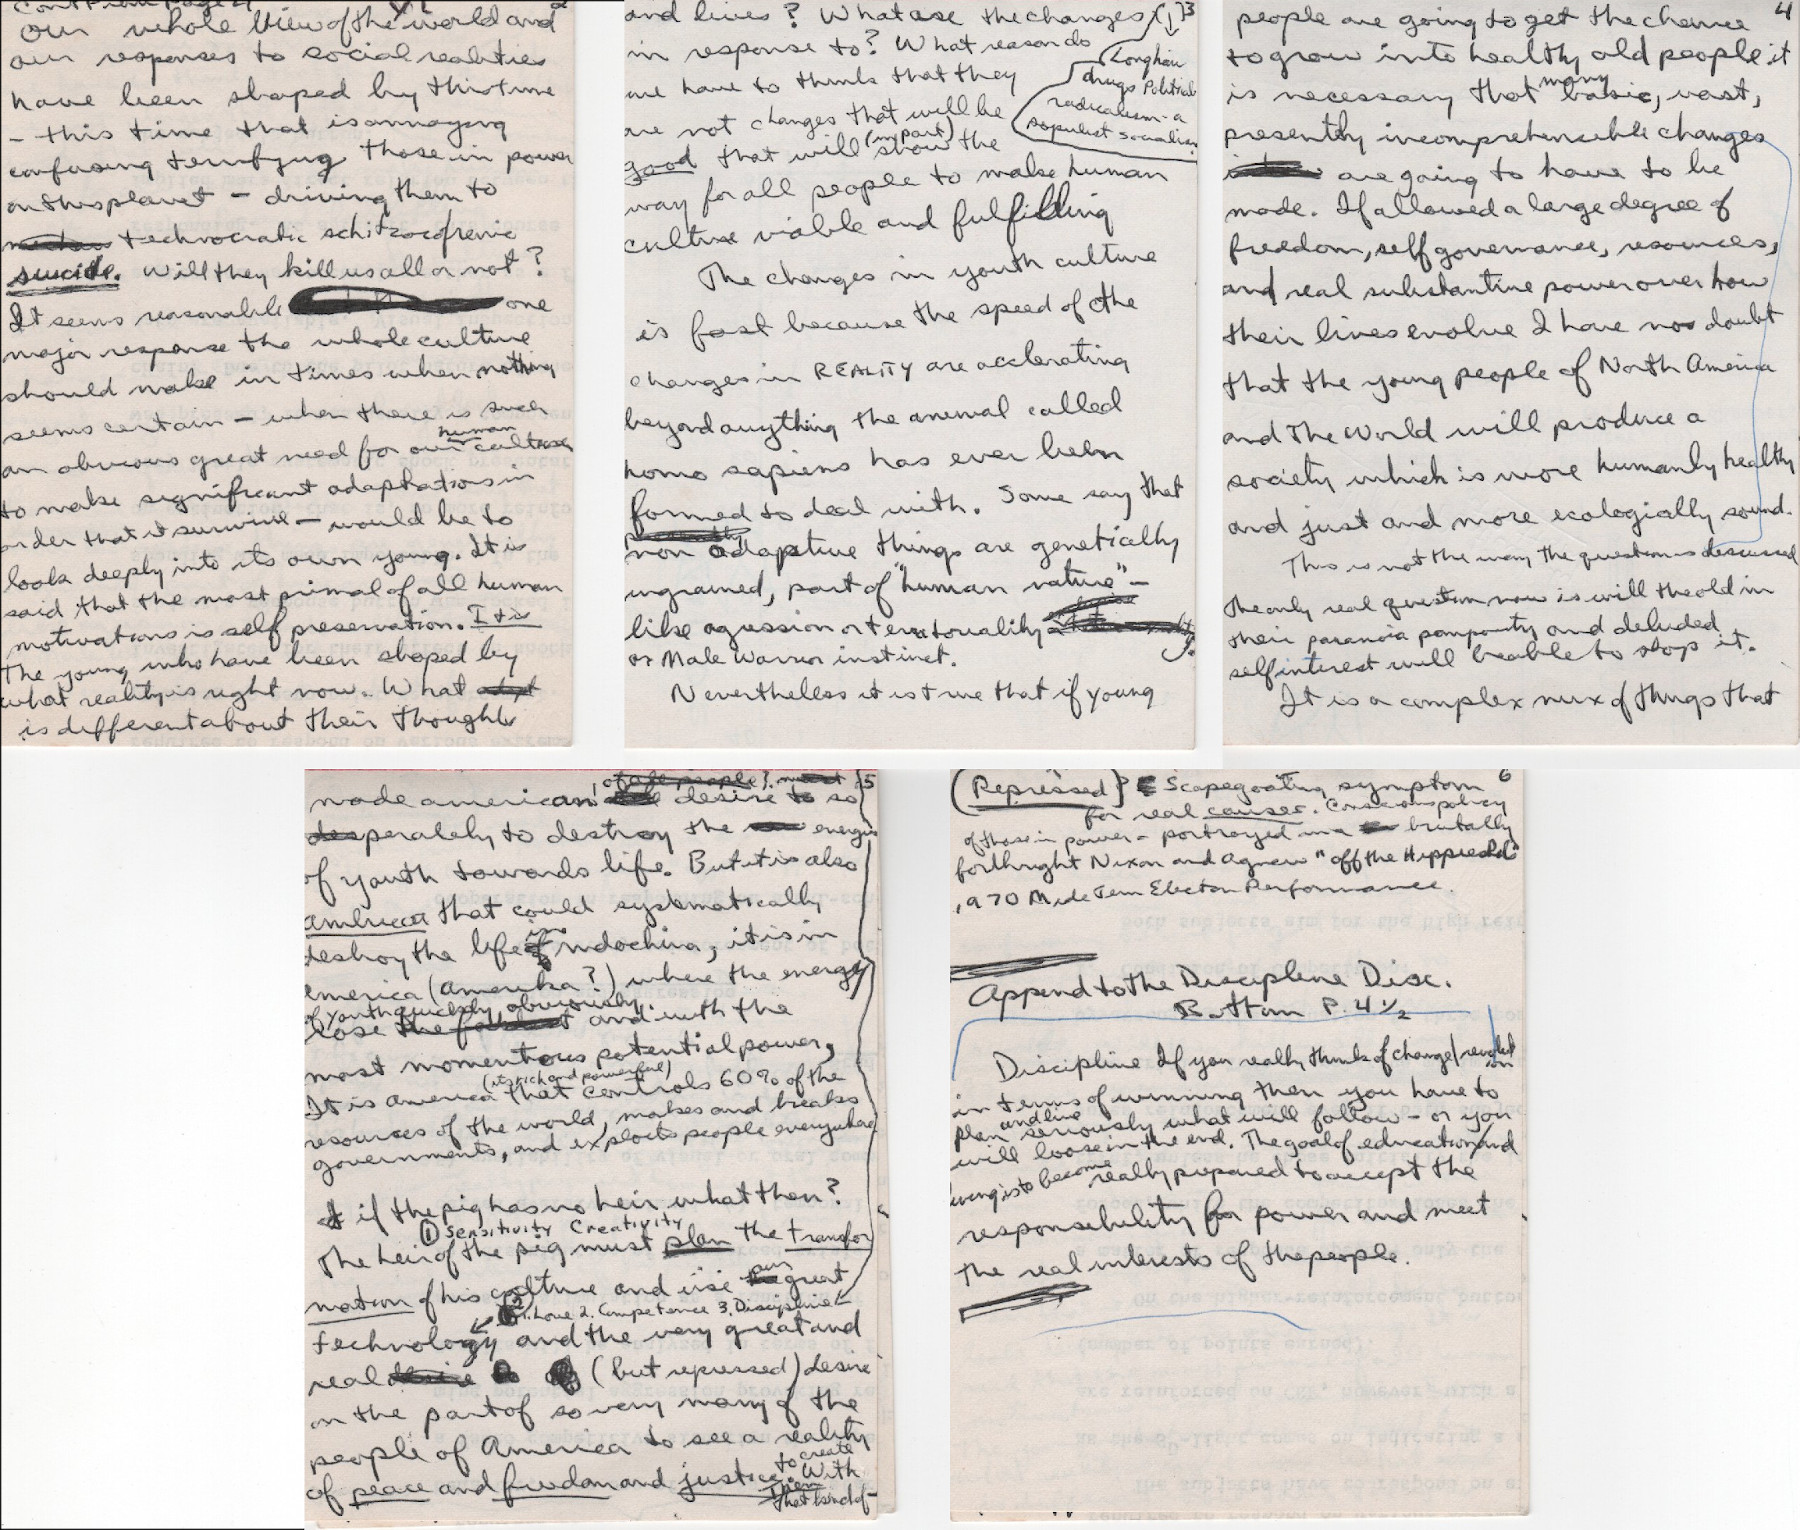 2
our whole view of the world and
our responses to social realities
have been shaped by this time
- this time that is annoying
confusing terrifying those in power
on this planet - driving them to
technocratic schitzocofrenic
suicide. Will they kill us all or not?
It seems reasonable one
major response the whole culture
should make in times when nothing
seems certain - when there is such
an obvious great need for our human culture
to make significant adaptations in
order that it survive - would be to
look deeply into its own young. It is
said that the most primal of all human
motivations is self preservation. It is
the young who have been shaped by
what reality is right now. What
is different about their thoughts
3
and lives? What are the changes
in response to? What reason do
we have to think that they
are not changes that will be
good that will (in part) show the
way for all people to make human
culture viable and fulfilling
Longhair
drugs Political
radicalism - a
populist socialism
The changes in youth culture
is fast because the speed of the
changes in REALITY are acclerating
beyond anything the animal called
homo sapiens has ever been
formed to deal with. Some say that
non adaptive things are genetically
ingrained, part of "human nature" -
like agression or territoriality
or Male Warrior instinct.
Nevertheless it is true that if young
4
people are going to get the chance
to grow into healthy old people it
is necessary that many basic, vast,
presently incomprehensible changes
are going to have to be
made. If allowed a large degree of
freedom, self governance, resources,
and real substantive power over how
their lives evolve I have no doubt
that the young people of North America
and The World will produce a
society which is more humanly healthy
and just and more ecologially sound.
This is not the way the question is discussed
The only real question now is will the old in
their paranoia pomposity and deluded
self interest will be able to stop it.
It is a complex mix of things that
5
of all people?
made american! desire to so
desperately to destroy the energies
of youth towards life. But it is also
america that could systematically
destroy the life in Indochina, it is in
america (amerika?) where the energy
of youth quickly obviously.
lose and with the
most momentous potential power,
(its rich and powerful)
It is america that controls 60% of the
resources of the world, makes and breaks
governments, and exploits people everywhere
if the pig has no heir what then?
① Sensitivity Creativity
The heir of the pig must plan the transfor
mation of his culture and use our great
1. Love 2. Competence 3. Discipline
technology and the very great and
real (but repressed) desire
on the part of so very many of the
people of America to see a reality
to create
of peace and freedom and justice. With
that kind of
6
(Repressed)? Scapegoating symptom
for real causes. Conscious policy
of those in power - portrayed in a brutally
forthright Nixon and Agnew "off the Hippieold"
1970 Mide Term Election Performance.
Append to the Discipline Disc.
Bottom P. 4 1/2
Discipline If you really think of change/revolution
in terms of winning then you have to
plan and live seriously what will follow - or you
will loose in the end. The goal of education and
living is to become really prepared to accept the
responsibility for power and meet
the real interests of the people.